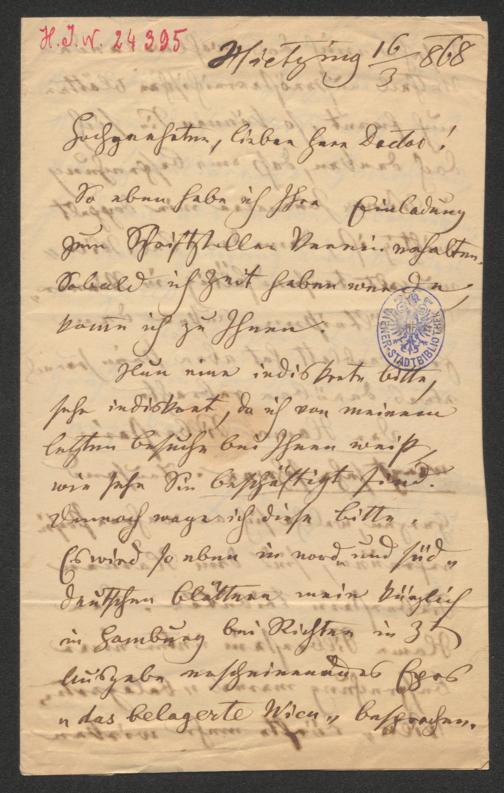 H.I.N. 24395
Hietzing 16/3 868
Hochgeehrter, lieber Herr Doctor!
So eben habe ich Ihre Einladung
zum Schriftsteller Verein erhalten.
Sobald ich Zeit haben werde,
komme ich zu Ihnen.
WIENER STADTBIBLIOTHEK
Nun eine indiskrete Bitte,
sehr indiskret, da ich von meinem
letzten Besuche bei Ihnen weiß,
wie sehr Sie beschäftigt sind.
Dennoch wage ich diese Bitte.
Es wird so eben in nord- und süd-
deutschen Blättern mein kürzlich
in Hamburg bei Richter in 3t
Ausgabe erscheinendes Epos
"das belagerte Wien" besprochen.